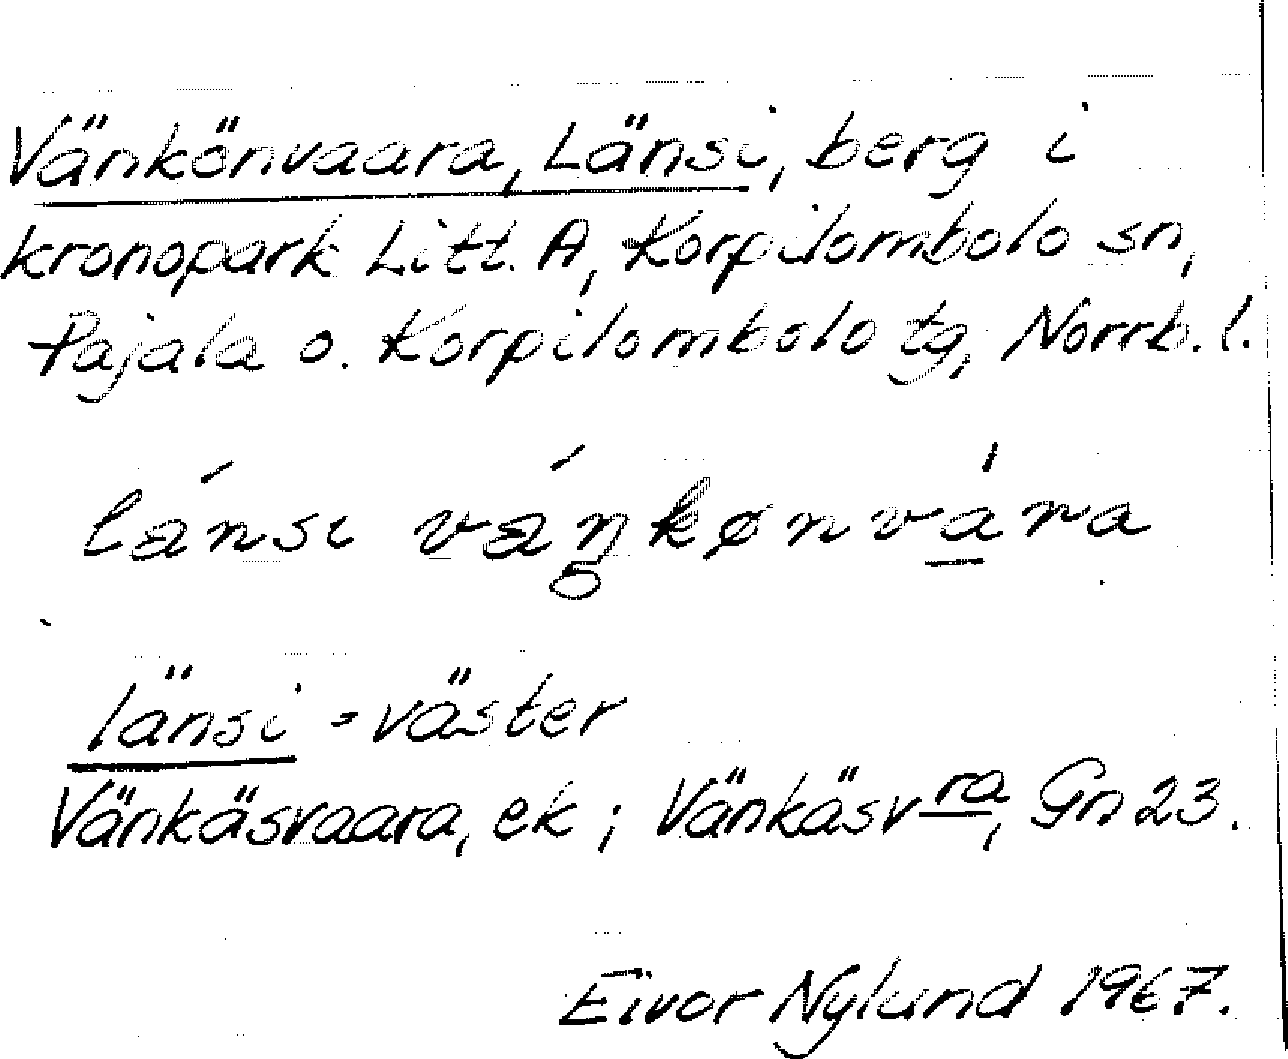 Vänkönvaara, Länsi, berg i
kronopark Litt. A, Korpilombolo sn,
Pajala o. Korpilombolo tg, Norrb. l.
länsi väŋkønvára
länsi = väster
Vänkäsvaara, ek; Vänkäsvra, Gn 23.
Eivor Nylund 1967.